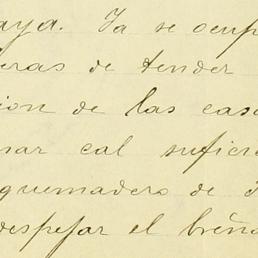 aya. Ya se ocup
eras de tender
ion de las casa
nar cal suficie
quemadero de
despejar el breña